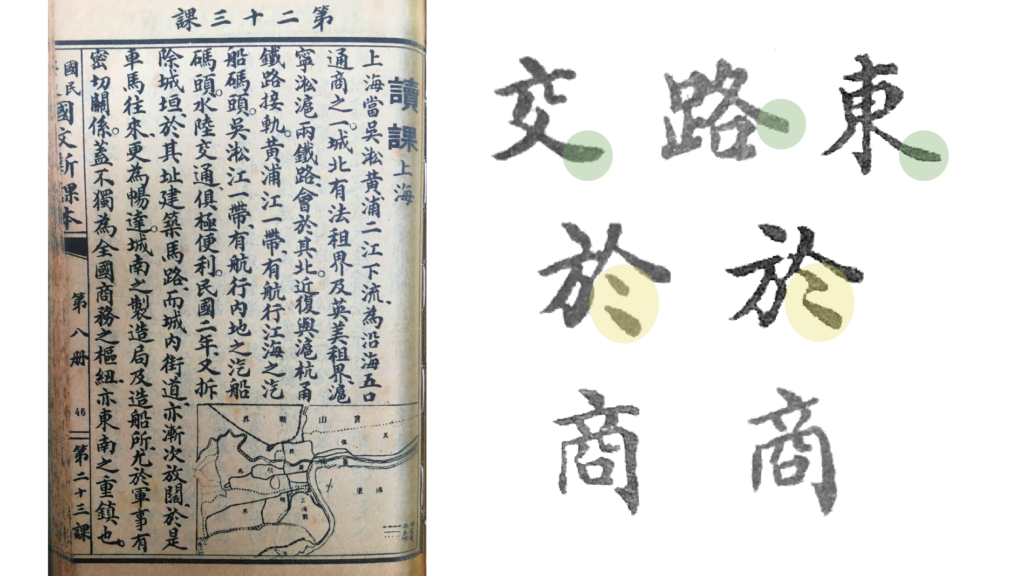 第二十三課
讀課 上海
上海當吳淞黃浦二江下流、為沿海五口
通商之一。城北有法租界及英美租界、滬
寧淞滬兩鐵路、會於其北。近復與滬杭甬
鐵路接軌。黃浦江一帶、有航行江海之汽
船碼頭。吳淞江一帶、有航行內地之汽船
碼頭。水陸交通、俱極便利。民國二年、又拆
除城垣、於其址建築馬路、而城內街道、亦漸次放闊、於是
車馬往來、更為暢達。城南之製造局及造船所、尤於軍事有
密切關係。蓋不獨為全國商務之樞紐、亦東南之重鎮也。
國民
國文新課本
第八冊
46
第二十三課
交 路 東
於 於
商 商